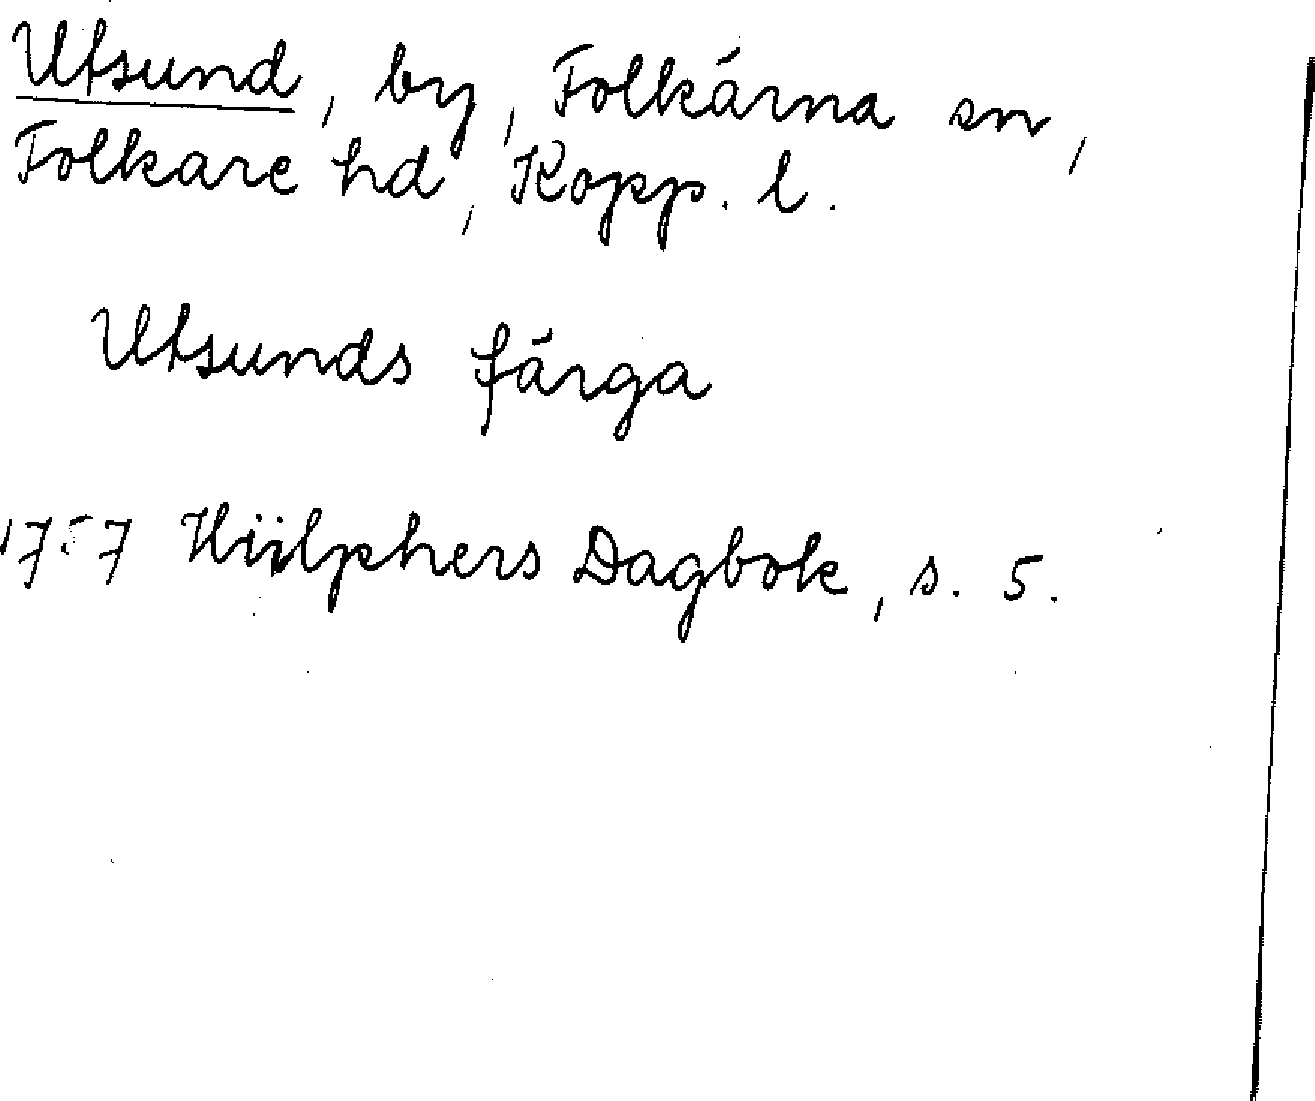 Utsund, by, Folkärna sn,
Folkare hd, Kopp. l.
Utsunds färga
1757 Hülphers Dagbok, s. 5.